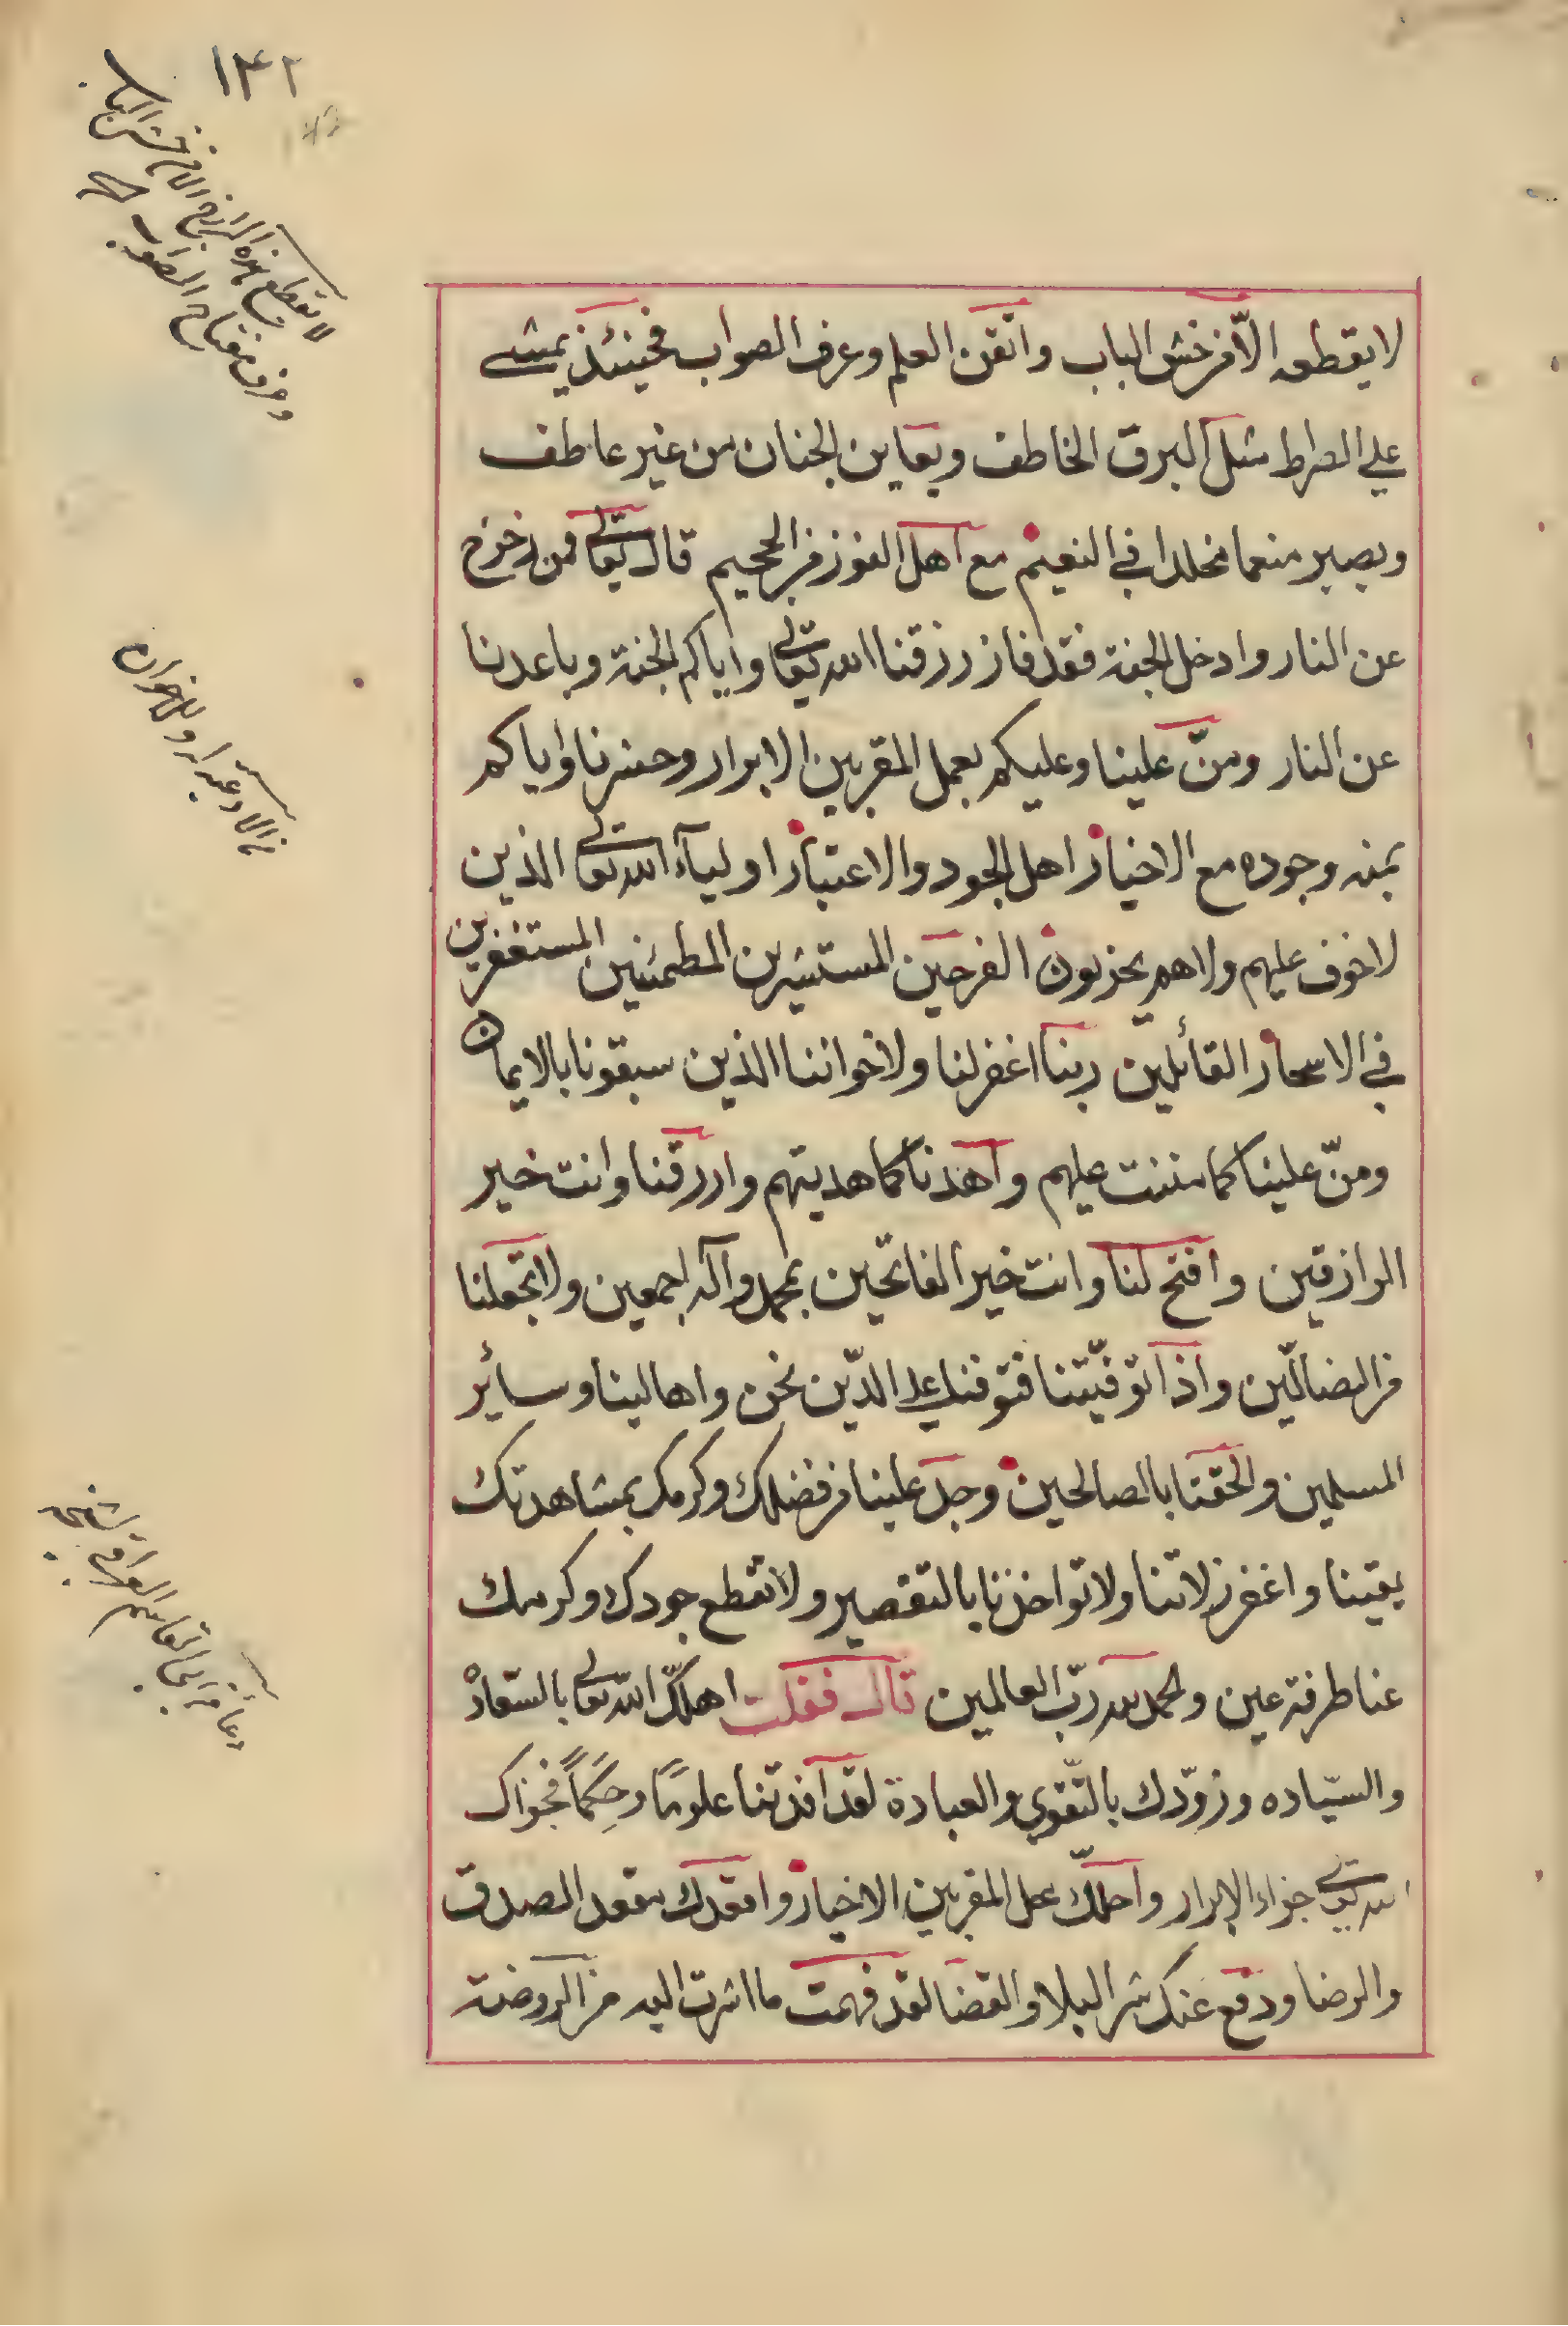 ١٤٢
لا يقطعه الّا من خش الباب واتقن العلم وعرف الصواب فحينئذ يمشي
علي الصراط مثل البرق الخاطف ويعاين الجنان من غير عاطف
ويصير منعما مخلدا في النعيم مع اهل الفوز من الجحيم قال تعالى فمن زحزح
عن النار وادخل الجنة فقد فاز رزقنا الله تعالى واياكم الجنة وباعدنا
عن النار ومنّ علينا وعليكم بعمل المقربين الابرار وحشرنا واياكم
بمنه وجوده مع الاخيار اهل الجود والاعتبار اوليآء الله تعالى الذين
لا خوف عليهم ولا هم يحزنون الفرحين المستبشرين المطمئنين المستغفرين
في الاسحار القائلين ربنا اغفر لنا ولاخواننا الذين سبقونا بالايمان
ومنّ علينا كما مننت عليهم واهدنا كما هديتهم وارزقنا وانت خير
الرازقين وافتح لنا وانت خير الفاتحين بمحمد وآله اجمعين ولا تجعلنا
من الضالّين واذا توفّيتنا فتوفنا على الدّين نحن واهالينا وسائر
المسلمين والحقنا بالصالحين وجد علينا من فضلك وكرمك بمشاهدتك
يقينا واغفر زلاتنا ولا تواخذنا بالتقصير ولا تقطع جودك وكرمك
عنا طرفة عين والحمد لله ربّ العالمين قال فقلت اهلّك الله تعالى بالسّعادة
والسّياده وزوّدك بالتّقوى والعبادة لقد افدتنا علومًا وحِكَماً فجزاك
الله تعالى جزاء الابرار واحلّك محل المقربين الاخيار واقعدك مقعد الصدق
والرضا ودفع عنك شر البلا والقضا لقد فهمت ما اشرت اليه من الروضة